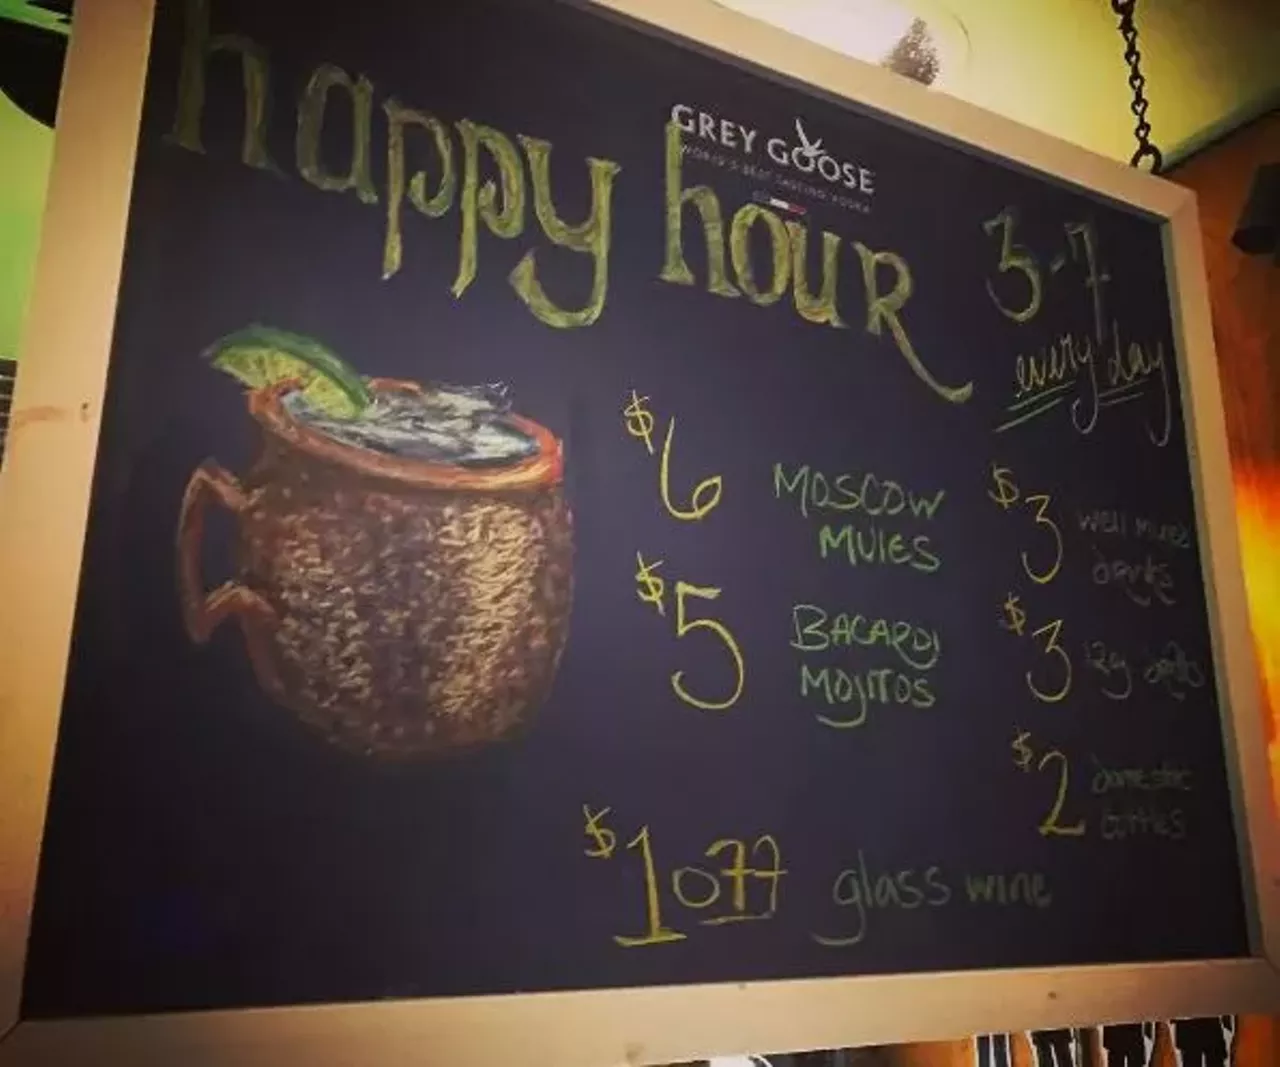 happy hour
GREY GOOSE
WORLD'S BEST TASTING VODKA
3-7
every day
$6 MOSCOW
MULES
$5 BACARDI
MOJITOS
$3 well mixed
drinks
$3 12g
$2 domestic
bottles
$1 off glass wine